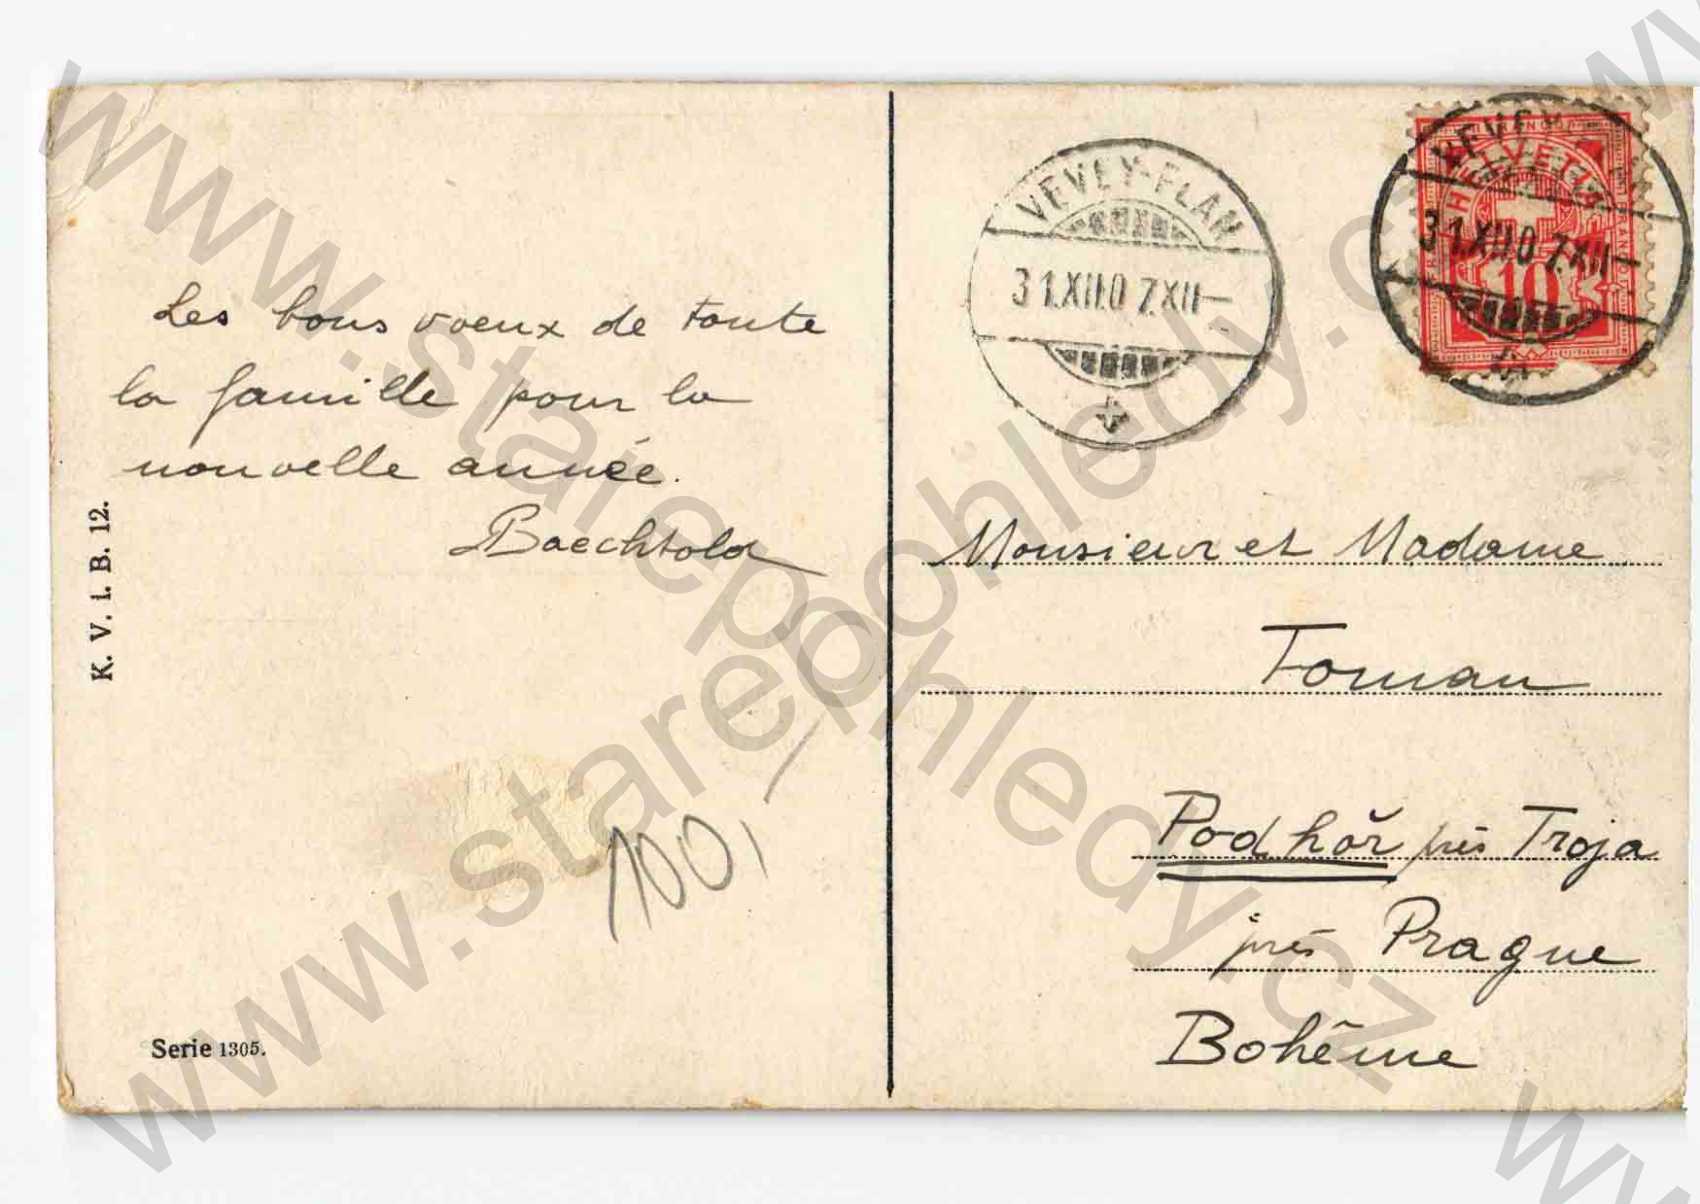 Les bons voeux de toute
la famille pour la
nouvelle année.
Baechtold
K. V. i. B. 12.
Serie 1305.
100,
VEVEY-PLAN
31.XII.07.XII—
VEVEY
31.XII.07.XII—
HELVETIA
FRANCO
10
Monsieur et Madame
Toman
Podhoř près Troja
près Prague
Bohême
www.starepohledy.cz
www.starepohledy.cz